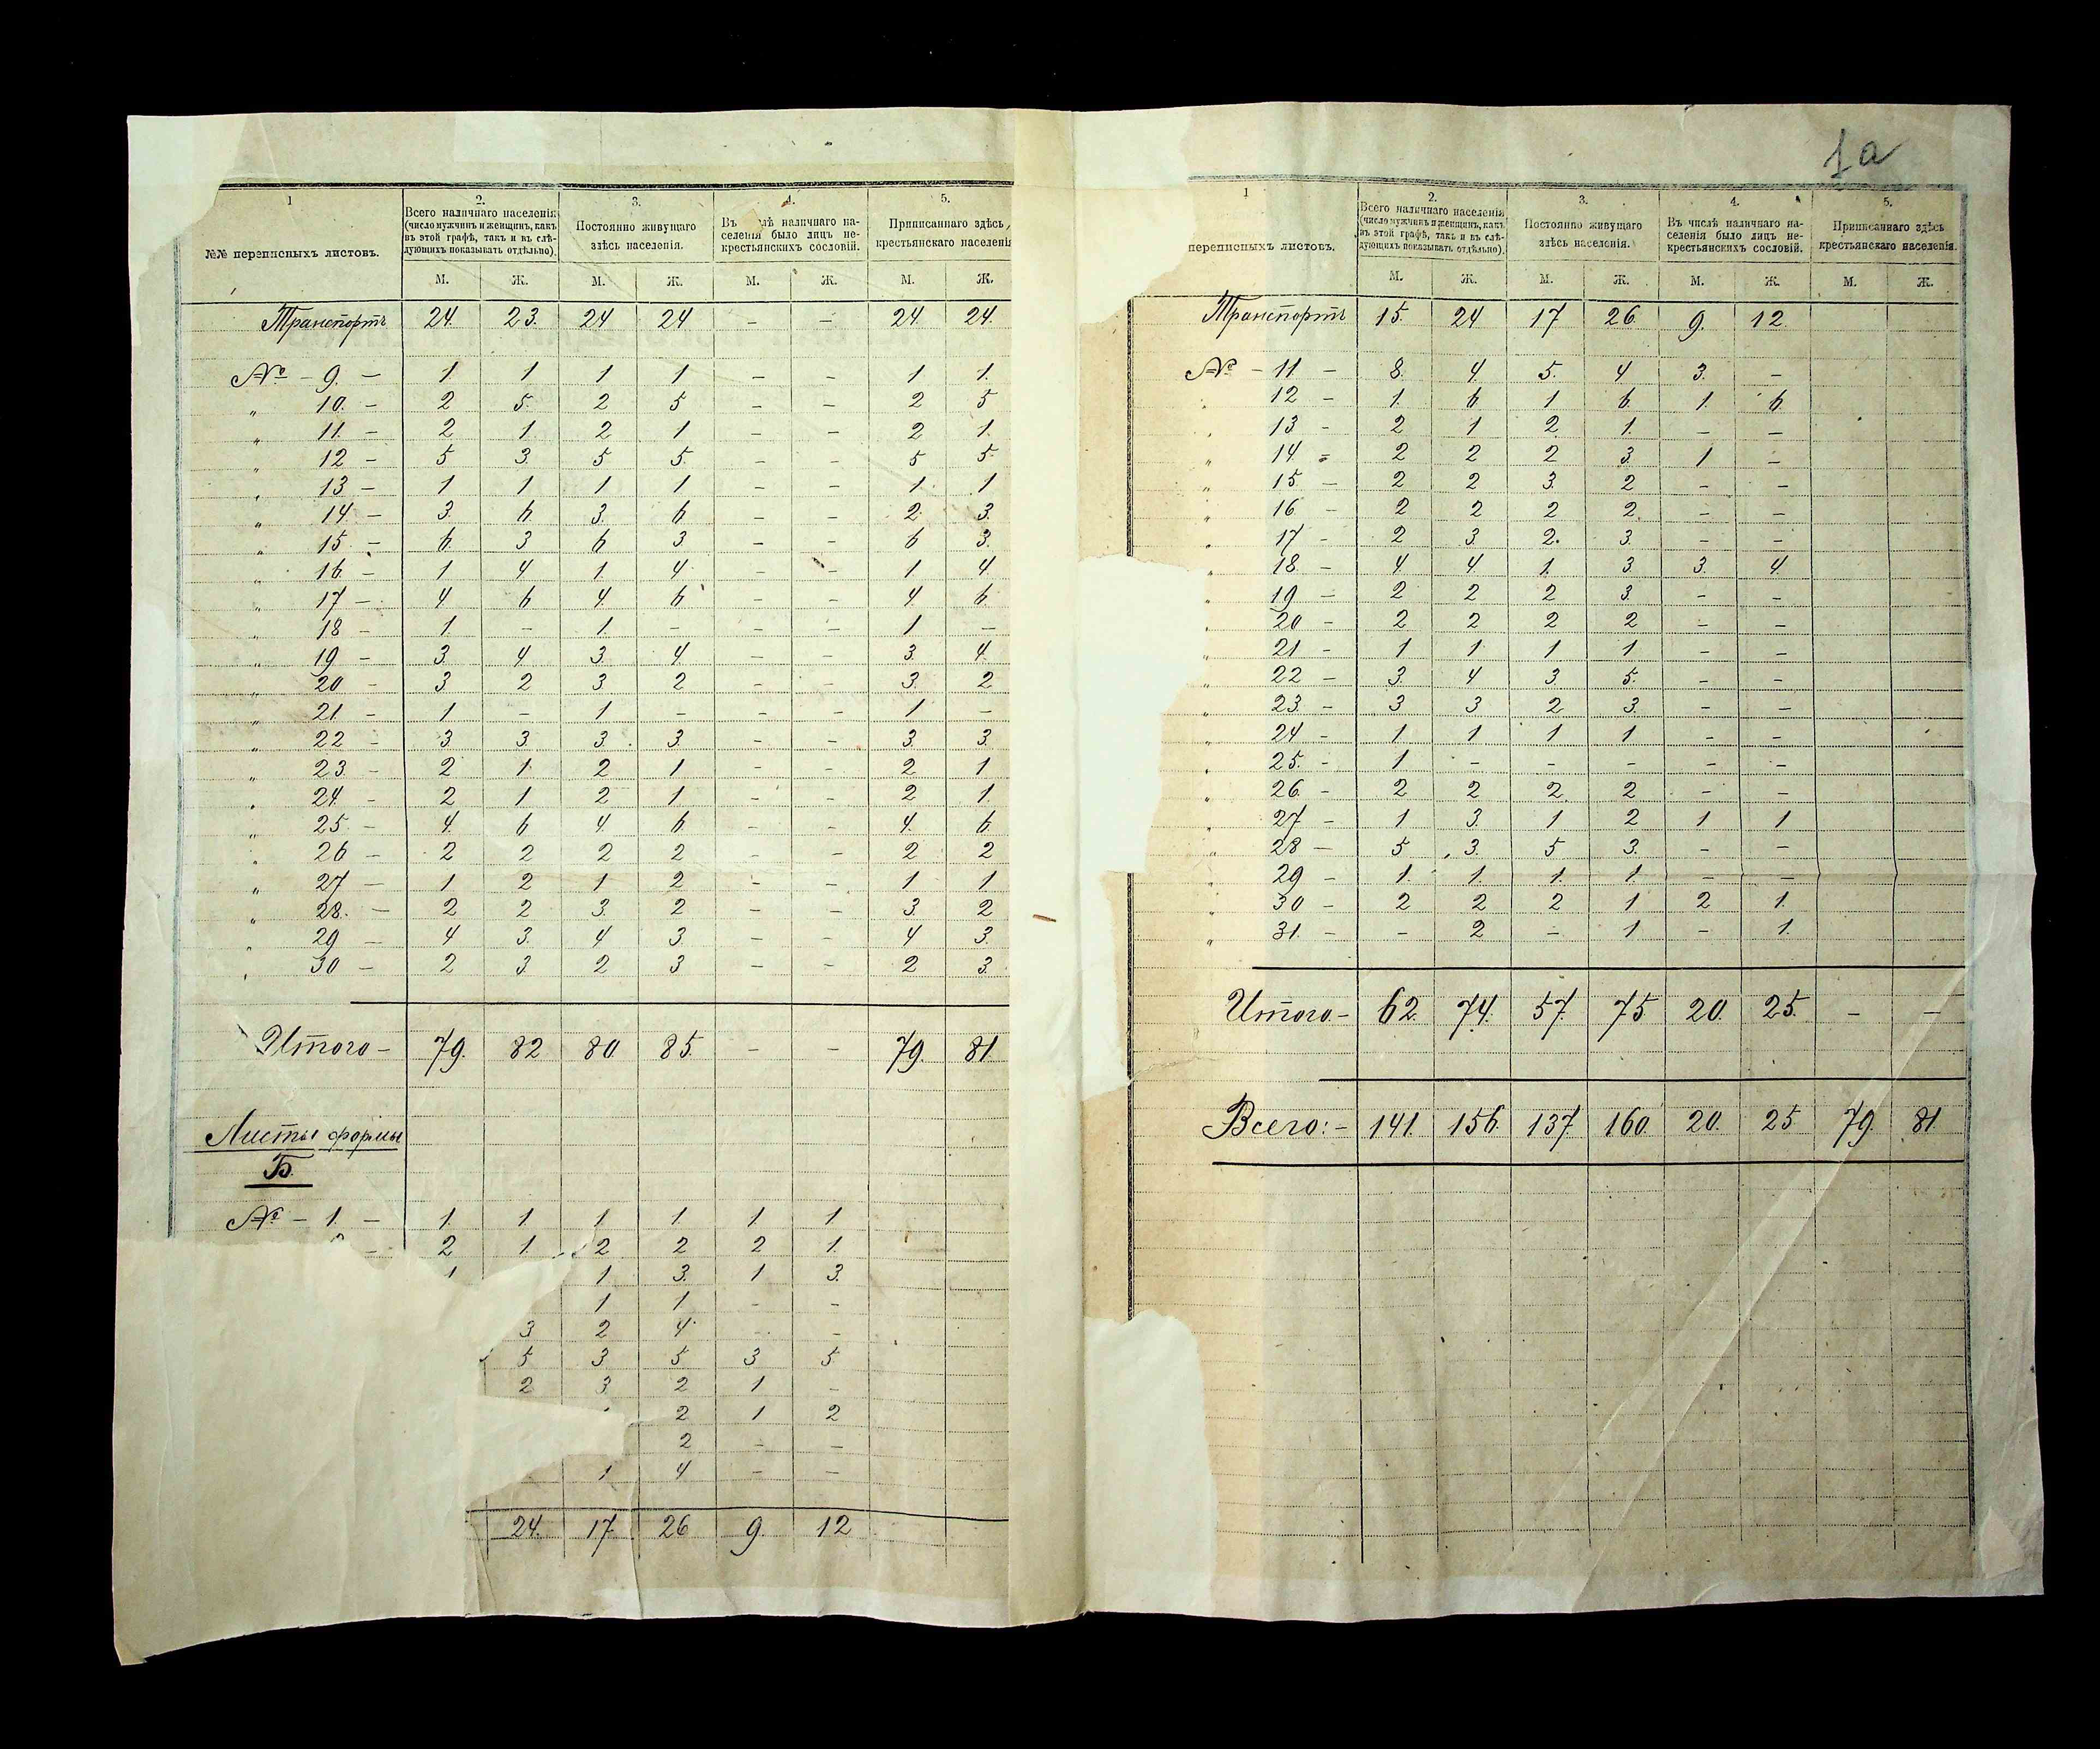 1a
1 2. 3. 4. 5.
№№ переписныхъ листовъ.
Всего наличнаго населенія
(число мужчинъ и женщинъ, какъ
въ этой графѣ, такъ и въ слѣ-
дующихъ показывать отдѣльно).
Постоянно живущаго
здѣсь населенія.
Въ лѣ наличнаго на-
селенія было лицъ не-
крестьянскихъ сословій.
Приписаннаго здѣсь
крестьянскаго населенія
М. Ж. М. Ж. М. Ж. М. Ж.
Транспортъ 24. 23. 24 24 - - 24. 24.
№ - 9. - 1. 1 1 1 - - 1 1.
„ 10. - 2 5. 2 5 - - 2 5
„ 11. - 2 1 2 1 - - 2 1.
„ 12 - 5 3. 5 5. - - 5 5.
„ 13 - 1 1 1 1 - - 1. 1
„ 14. - 3. 6. 3. 6 - - 2. 3.
„ 15. - 6. 3 6 3 - - 6 3.
„ 16. - 1 4 1. 4. - - 1 4.
„ 17 - 4 6 4. 6 - - 4. 6.
„ 18 - 1. - 1. - - - 1 -
„ 19 - 3. 4 3. 4 - - 3. 4.
„ 20 - 3 2 3. 2 - - 3. 2
„ 21 - 1 - 1 - - - 1 -
„ 22 - 3. 3. 3. 3. - - 3. 3.
„ 23. - 2 1. 2 1 - - 2 1
„ 24. - 2 1 2 1 - - 2 1.
„ 25. - 4. 6 4. 6. - - 4. 6.
„ 26 - 2 2 2 2 - - 2 2
„ 27 - 1 2 1 2 - - 1 1
„ 28. - 2 2 3. 2 - - 3. 2
„ 29 - 4 3. 4 3. - - 4 3.
„ 30 - 2 3. 2 3 - - 2 3.
Итого - 79. 82 80. 85. - - 79. 81.
Листы формы
Б.
№ - 1. - 1. 1 1 1. 1 1
- 2 1. 2 2 2 1.
1 1 3. 1 3.
1 1 - -
3 2 4. - -
5 3 5 3 5
2 3. 2 1 -
2 1 2
2 - -
1 4 - -
24. 17. 26 9. 12
1 2. 3. 4. 5.
переписныхъ листовъ.
Всего наличнаго населенія
(число мужчинъ и женщинъ, какъ
въ этой графѣ, такъ и въ слѣ-
дующихъ показывать отдѣльно).
Постоянно живущаго
здѣсь населенія.
Въ числѣ наличнаго на-
селенія было лицъ не-
крестьянскихъ сословій.
Приписаннаго здѣсь
крестьянскаго населенія.
М. Ж. М. Ж. М. Ж. М. Ж.
Транспортъ 15. 24 17 26. 9. 12.
№ - 11 - 8. 4. 5. 4 3. -
„ 12 - 1. 6 1 6. 1. 6.
„ 13 - 2 1 2 1. - -
„ 14 - 2 2 2 3. 1 -
„ 15. - 2 2 3. 2 - -
„ 16 - 2 2 2 2. - -
„ 17 - 2 3. 2. 3. - -
„ 18. - 4 4. 1. 3. 3. 4.
„ 19 - 2 2 2 3. - -
„ 20 - 2 2 2 2 - -
„ 21 - 1 1. 1 1 - -
„ 22 - 3. 4 3. 5. - -
„ 23. - 3 3 2 3. - -
„ 24 - 1 1 1 1 - -
„ 25. - 1 - - - - -
„ 26. - 2 2 2. 2 - -
„ 27 - 1 3. 1 2 1 1
„ 28 - 5 3. 5 3. - -
„ 29 - 1. 1. 1. 1. - -
„ 30 - 2 2 2 1 2 1.
„ 31. - - 2 - 1 - 1.
Итого. - 62. 74. 57. 75 20. 25. - -
Всего: - 141. 156. 137. 160. 20. 25 79. 81.